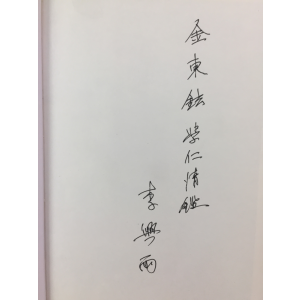 金東鉉學仁情鑑
李興雨